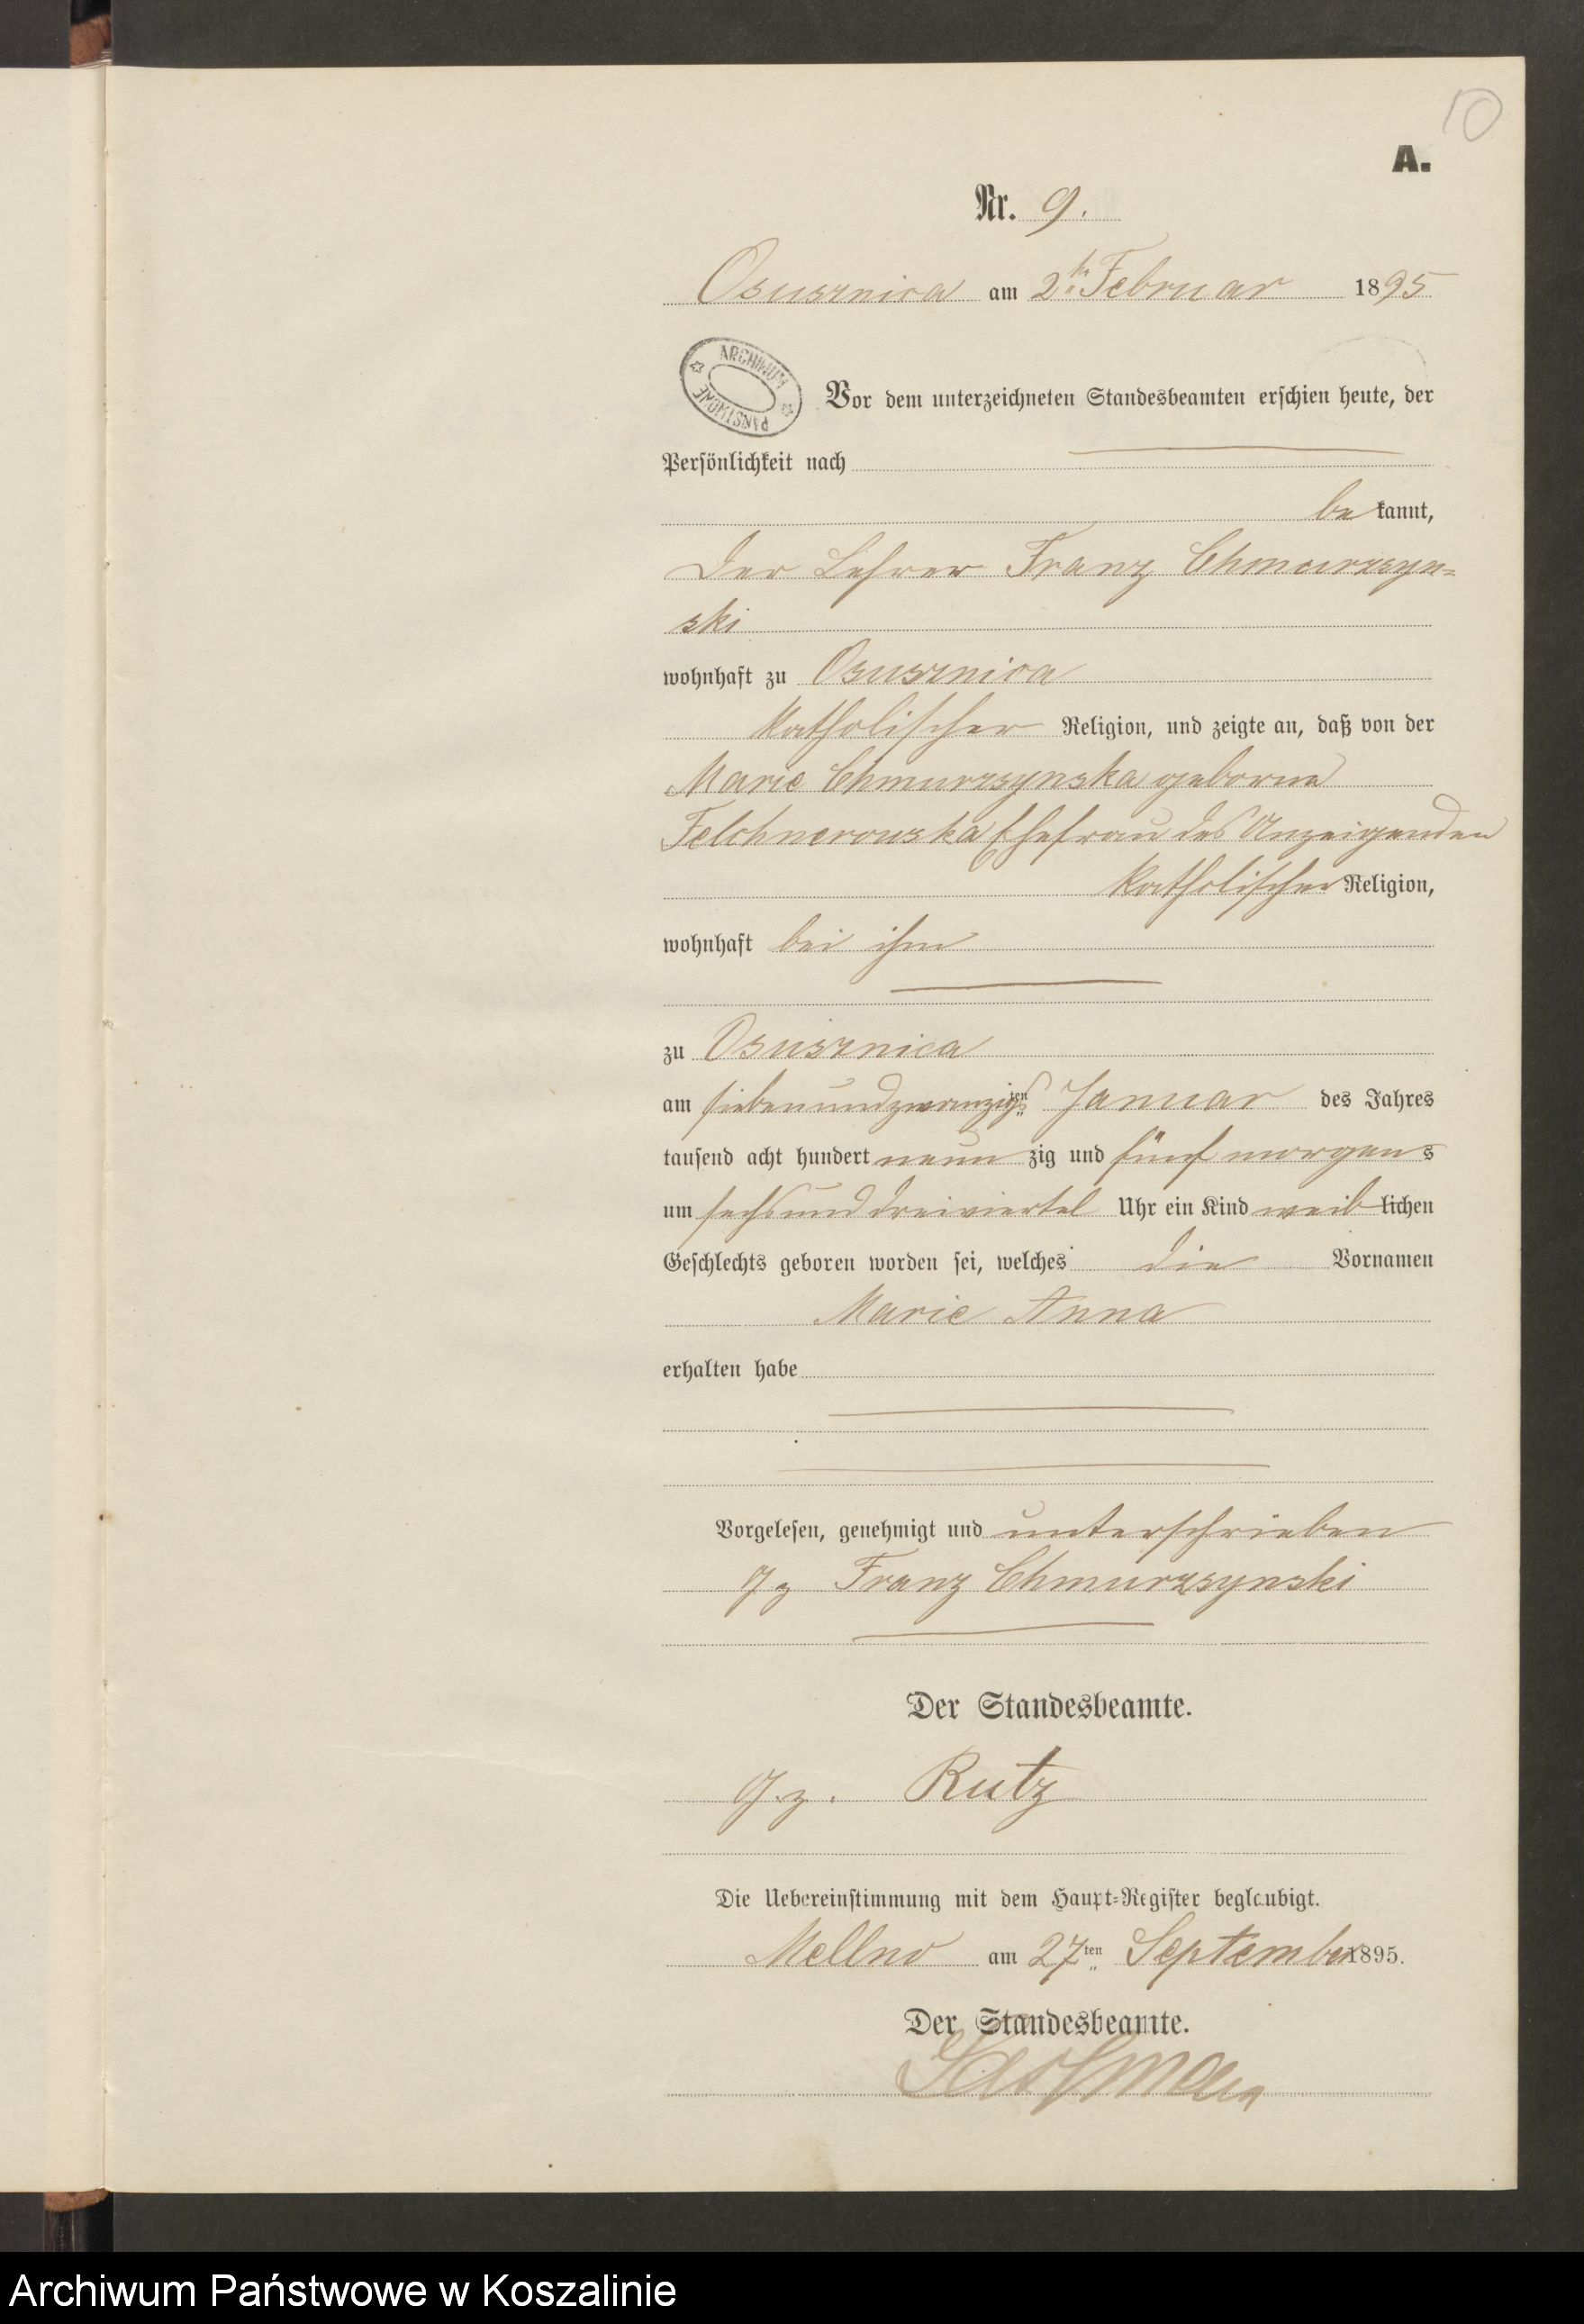 10
A.
Nr. 9.
Osusznica am 2ten Februar 1895
ARCHIWUM PAŃSTWOWE
Vor dem unterzeichneten Standesbeamten erschien heute, der
Persönlichkeit nach
be kannt,
der Lehrer Franz Chmurzsyn=
ski
wohnhaft zu Osusznica
katholischer Religion, und zeigte an, daß von der
Marie Chmurzsynska geborne
Felchnerowska Ehefrau des Anzeigenden
katholischer Religion,
wohnhaft bei ihm
zu Osusznica
am siebenundzwanzigsten Januar des Jahres
tausend acht hundert neun zig und fünf morgens
um sechs und dreiviertel Uhr ein Kind weib lichen
Geschlechts geboren worden sei, welches die Vornamen
Marie Anna
erhalten habe
Vorgelesen, genehmigt und unterschrieben
gz Franz Chmurzsynski
Der Standesbeamte.
gz. Rutz
Die Uebereinstimmung mit dem Haupt=Register beglaubigt.
Mellno am 27ten September 1895.
Der Standesbeamte.
Archiwum Państwowe w Koszalinie